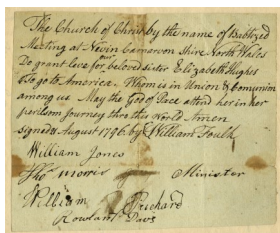 The Church of Christ by the name of Baptized
Meeting at Nevin Carnarvon Shire North Wales
Do grant leve for our beloved sister Elizabeth Hughes
To go to America. Whom is in Union & Comunion
among us May the God of Peace attend her in her
perilsom Journey thro this World Amen
signed August 1796 by William Foulk
William Jones
Tho.s Morris Minister
William Prichard
Rowland Davs